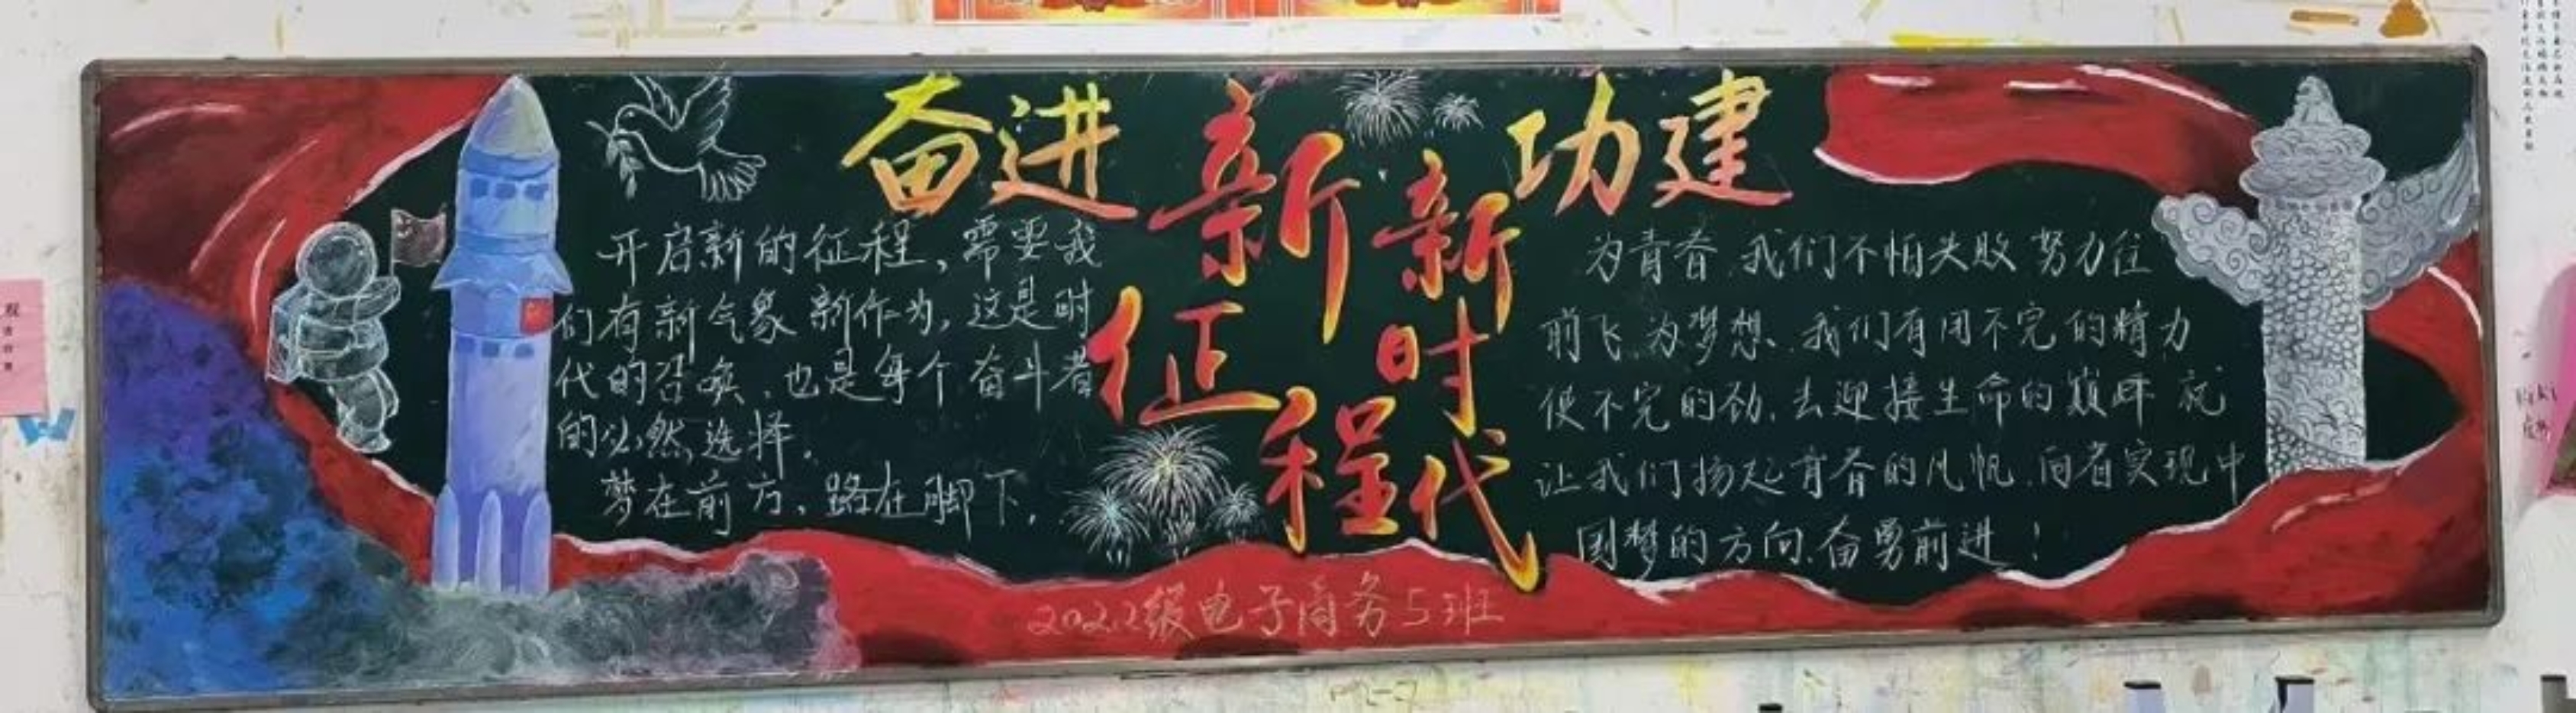 奋进新征程
建功新时代
开启新的征程，需要我
们有新气象 新作为，这是时
代的召唤，也是每个奋斗者
的必然选择。
梦在前方，路在脚下。
为青春 我们不怕失败 努力往
前飞 为梦想、我们有用不完的精力
使不完的劲，去迎接生命的巅峰 就
让我们扬起青春的风帆，向着实现中
国梦的方向，奋勇前进！
2022级电子商务5班